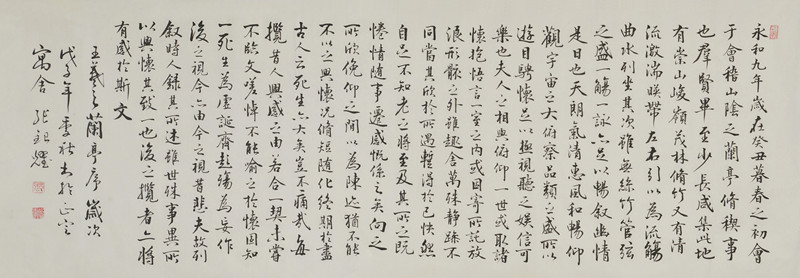 永和九年歲在癸丑暮春之初會
于會稽山陰之蘭亭脩稧事
也羣賢畢至少長咸集此地
有崇山峻嶺茂林脩竹又有清
流激湍暎帶左右引以為流觴
曲水列坐其次雖無絲竹管弦
之盛一觴一詠亦足以暢叙幽情
是日也天朗氣清惠風和暢仰
觀宇宙之大俯察品類之盛所以
遊目騁懷足以極視聽之娛信可
樂也夫人之相與俯仰一世或取諸
懷抱悟言一室之內或因寄所託放
浪形骸之外雖趣舍萬殊靜躁不
同當其欣於所遇蹔得於己怏然
自足不知老之將至及其所之既
惓情隨事遷感慨係之矣向之
所欣俛仰之閒以為陳迹猶不能
不以之興懷況脩短隨化終期於盡
古人云死生亦大矣豈不痛哉每
攬昔人興感之由若合一契未嘗
不臨文嗟悼不能喻之於懷固知
一死生為虛誕齊彭殤為妄作
後之視今亦由今之視昔悲夫故列
叙時人錄其所述雖世殊事異所
以興懷其致一也後之攬者亦將
有感於斯文
王羲之蘭亭序 歲次
戊子年季秋書於
寓舍 張